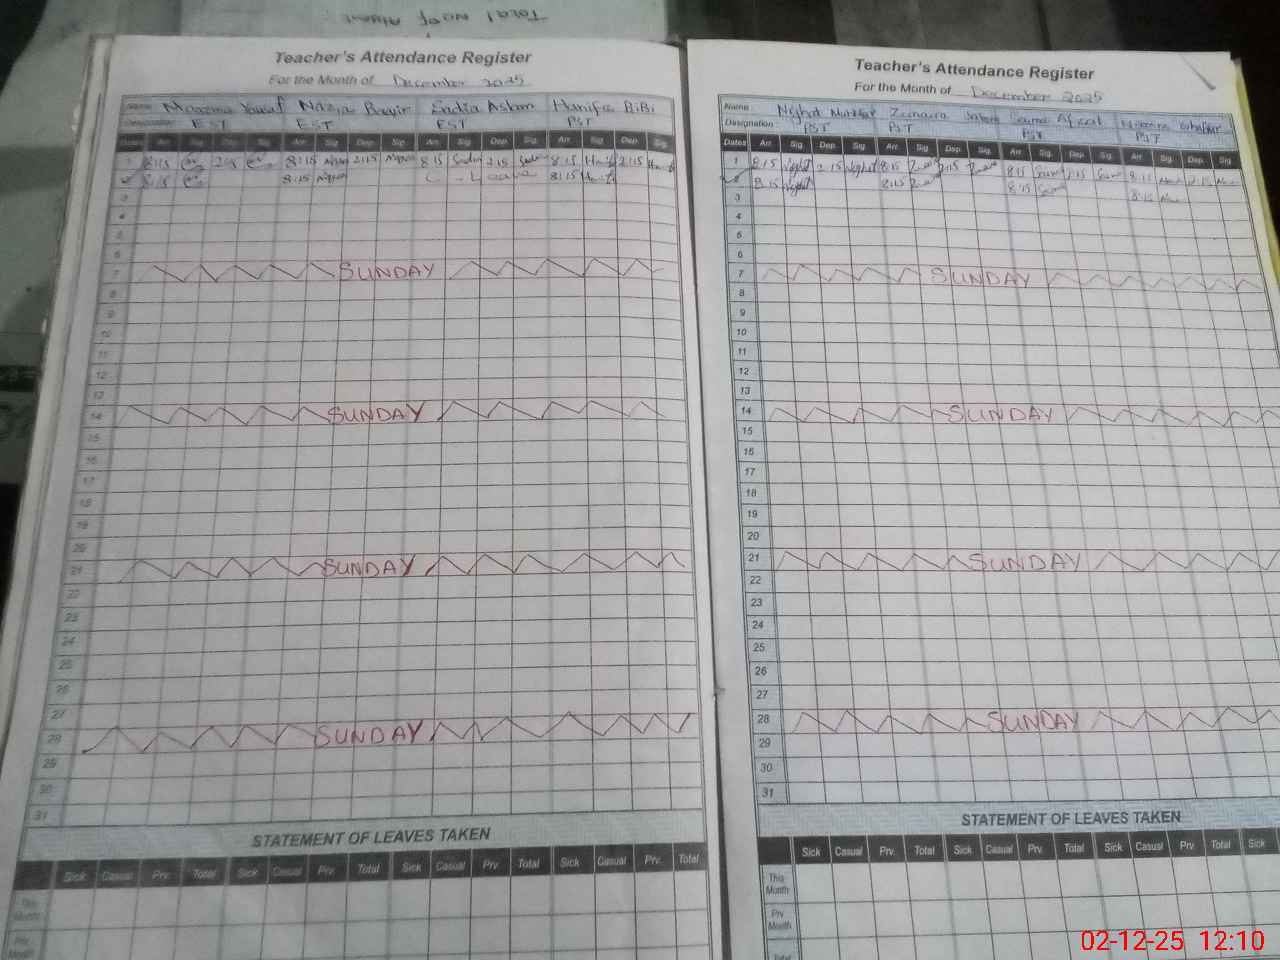 Total no of
Teacher's Attendance Register
For the Month of December 2025
Name Nazia Sadia Aslam Hanifa BiBi
Designation EST EST EST PST
Dates Arr. Sig. Dep. Sig. Arr. Sig. Dep. Sig. Arr. Sig. Dep. Sig. Arr. Sig. Dep. Sig.
1 8:15 2:15 8:15 2:15 8:15 2:15 8:15 2:15
2 8:15 8:15 8:15
3
4
5
6
7 SUNDAY
8
9
10
11
12
13
14 SUNDAY
15
16
17
18
19
20
21 SUNDAY
22
23
24
25
26
27
28 SUNDAY
29
30
31
STATEMENT OF LEAVES TAKEN
Sick Casual Prv. Total Sick Casual Prv. Total Sick Casual Prv. Total Sick Casual Prv. Total
This Month
Prv. Month
Teacher's Attendance Register
For the Month of December 2025
Name
Designation PST PST PST PST
Dates Arr. Sig. Dep. Sig. Arr. Sig. Dep. Sig. Arr. Sig. Dep. Sig. Arr. Sig. Dep. Sig
1 8:15 2:15 8:15 2:15 8:15 2:15 8:15 2:15
2 8:15 8:15 8:15 8:15
3
4
5
6
7 SUNDAY
8
9
10
11
12
13
14 SUNDAY
15
16
17
18
19
20
21 SUNDAY
22
23
24
25
26
27
28 SUNDAY
29
30
31
STATEMENT OF LEAVES TAKEN
Sick Casual Prv. Total Sick Casual Prv. Total Sick Casual Prv. Total Sick
This Month
Prv. Month
Total
02-12-25 12:10